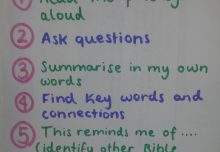 1 Read the p
aloud
2 Ask questions
3 Summarise in my own
words
4 Find key words and
connections
5 This reminds me of ....
(identify other Bible